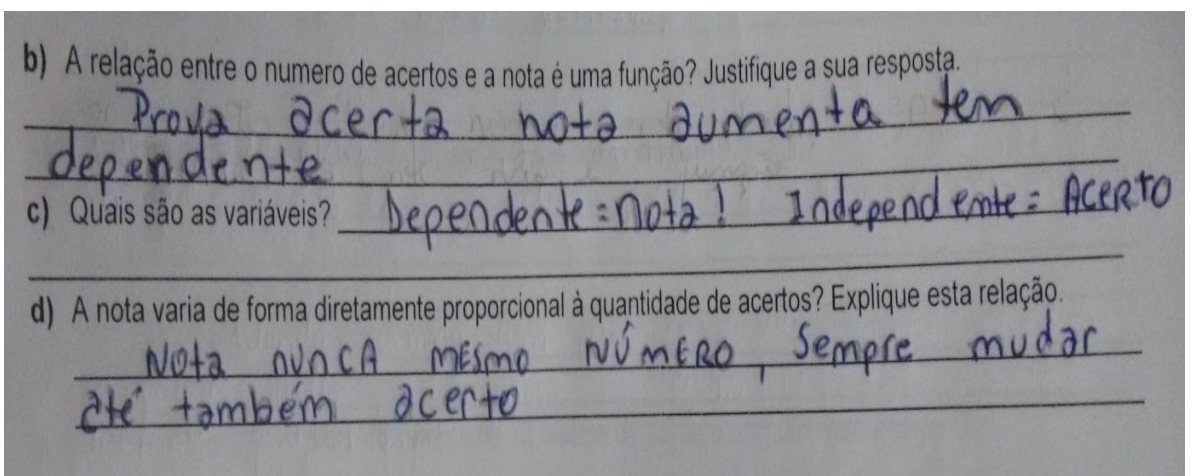 b) A relação entre o numero de acertos e a nota é uma função? Justifique a sua resposta.
Prova acerta nota aumenta tem
dependente
c) Quais são as variáveis? Dependente = nota! Independente = ACERTO
d) A nota varia de forma diretamente proporcional à quantidade de acertos? Explique esta relação.
Nota nunca mesmo NÚMERO, Sempre mudar
até também acerto